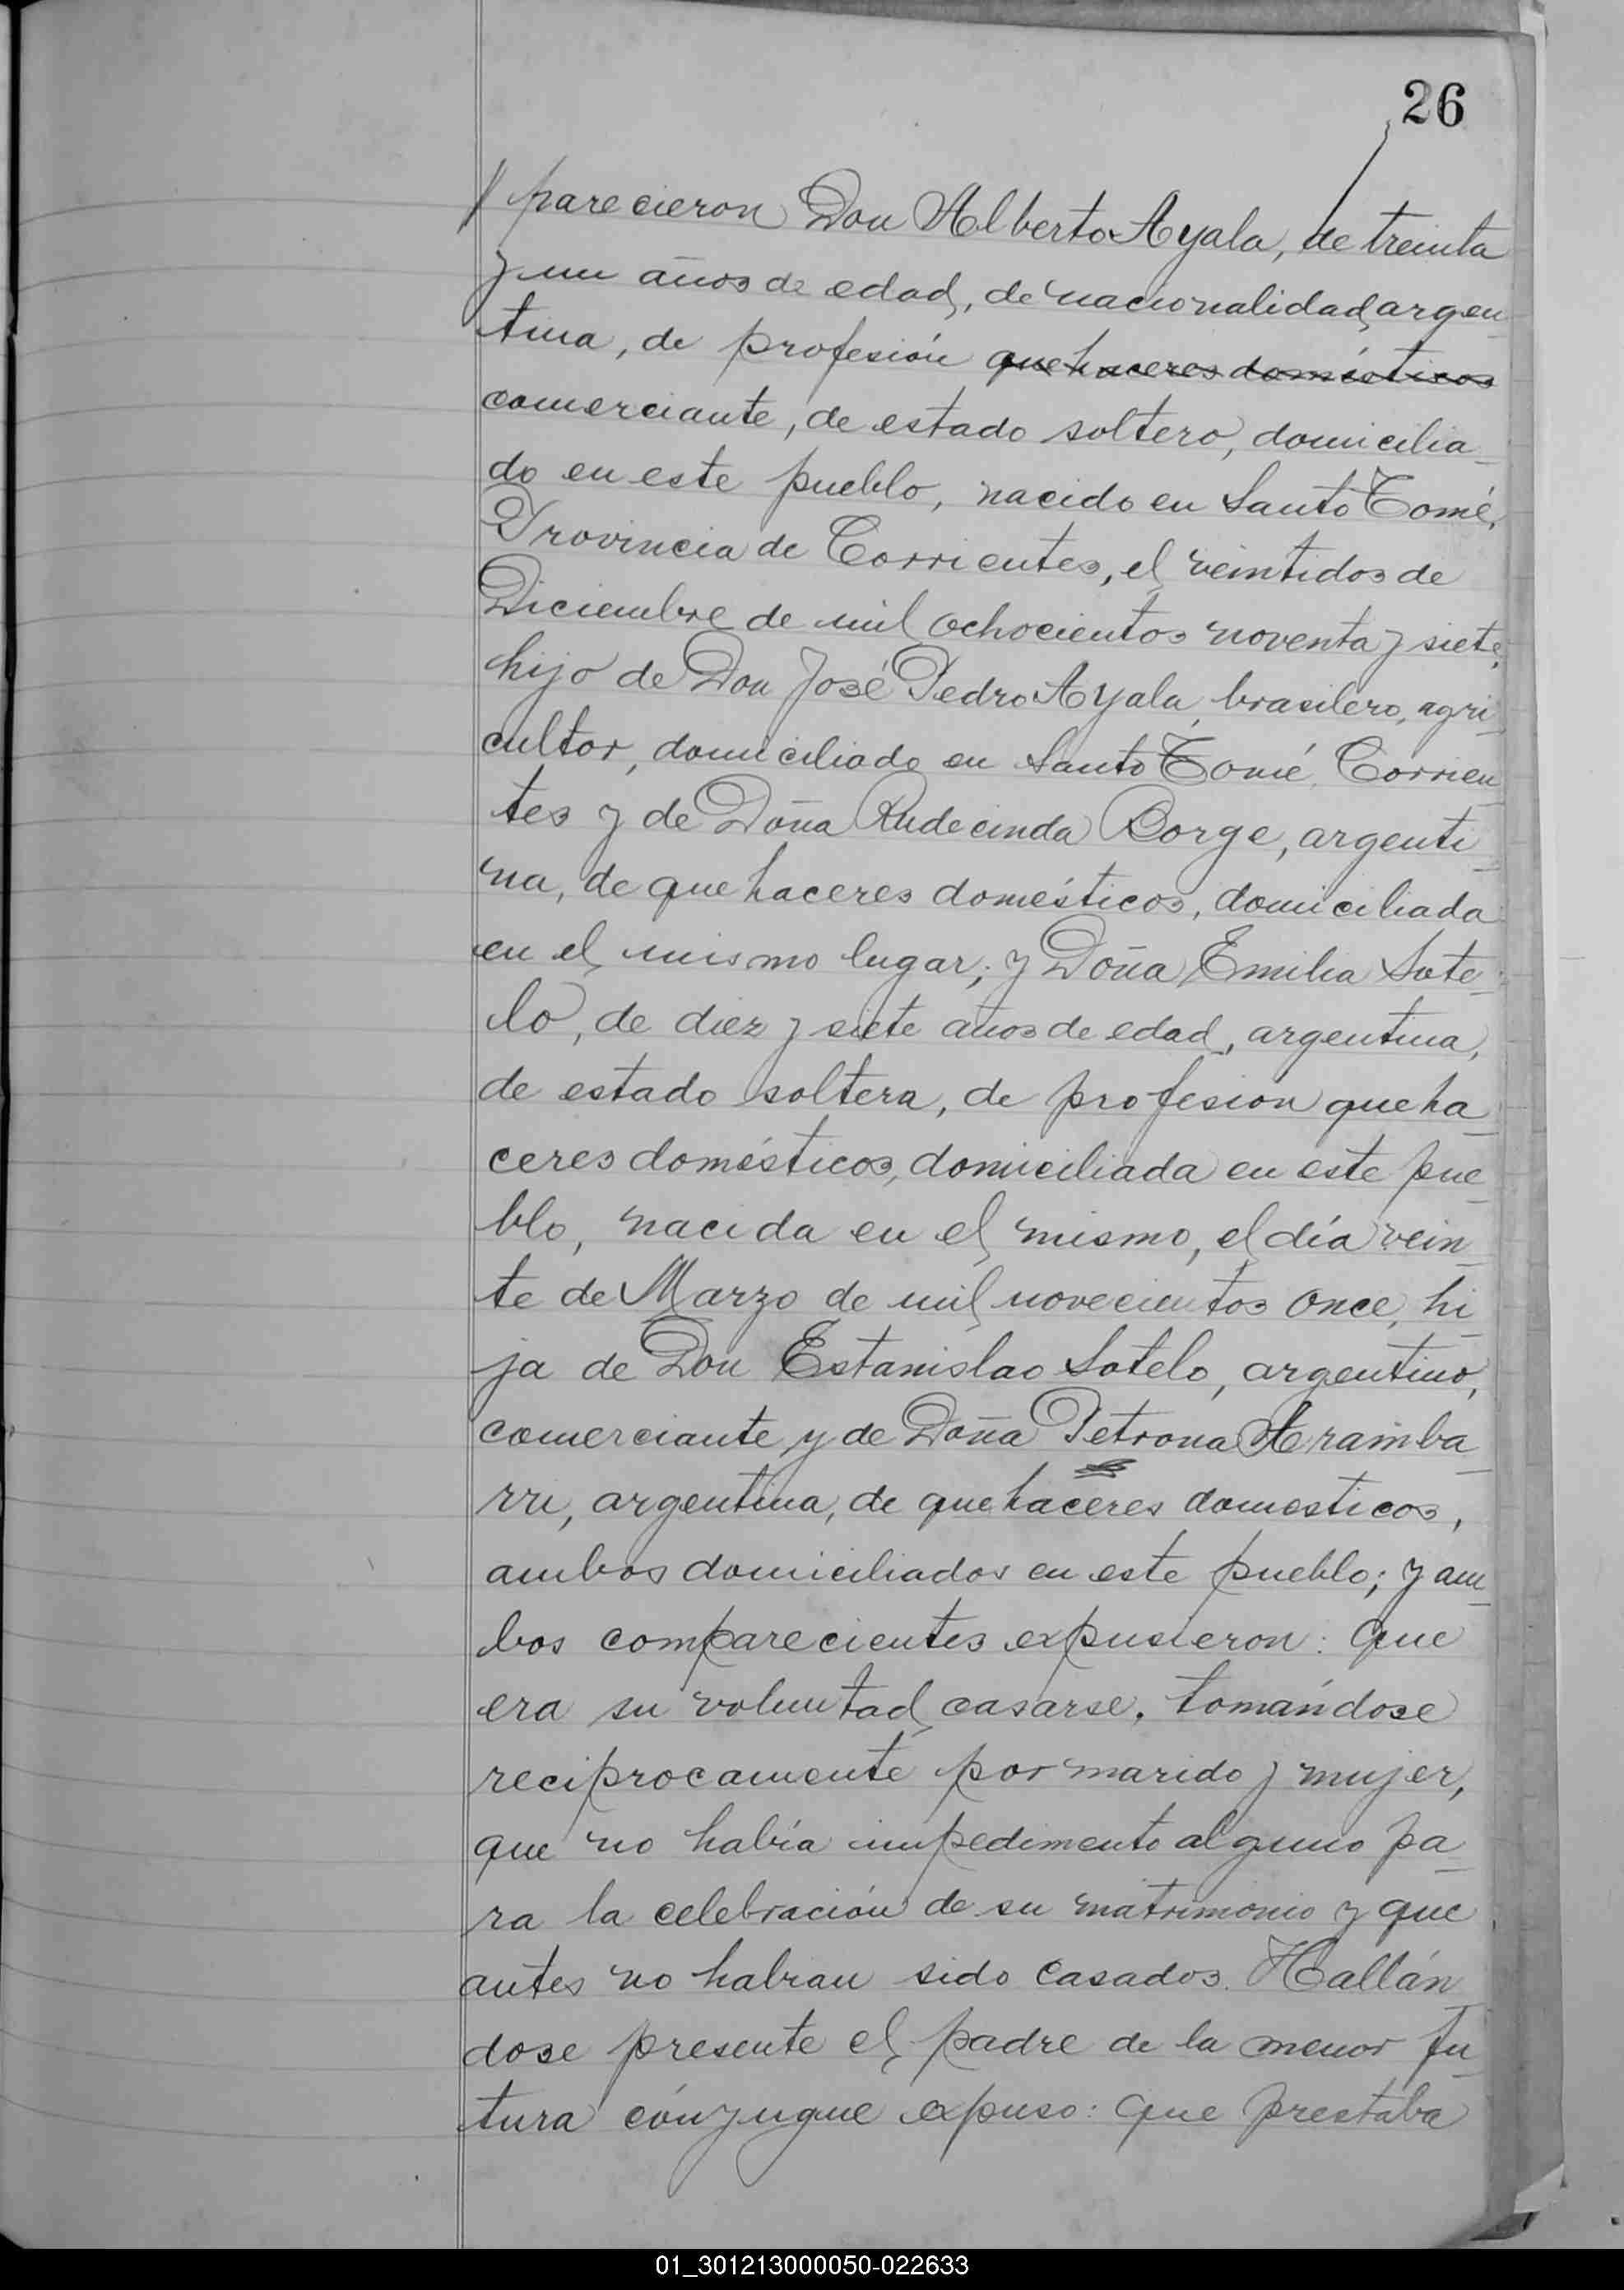 26
// parecieron Don Alberto Ayala, de treinta
y un años de edad, de nacionalidad argen
tina, de profesión quehaceres domésticos
comerciante, de estado soltero, domicilia_
do en este pueblo, nacido en Santo Tomé,
Provincia de Corrientes, el veintidos de
Diciembre de mil ochocientos noventa y siete,
hijo de Don José Pedro Ayala, brasilero, agri_
cultor, domiciliado en Santo Tomé, Corrien_
tes y de Doña Rudecinda Borge, argenti_
na, de quehaceres domésticos, domiciliada
en el mismo lugar; y Doña Emilia Sote_
lo, de diez y siete años de edad, argentina,
de estado soltera, de profesion queha_
ceres domésticos, domiciliada en este pue_
blo, nacida en el mismo, el día vein_
te de Marzo de mil novecientos once, hi_
ja de Don Estanislao Sotelo, argentino,
comerciante y de Doña Petrona Aramba_
rri, argentina, de quehaceres domesticos,
ambos domiciliados en este pueblo; y am_
bos comparecientes expusieron: que
era su voluntad casarse, tomándose
reciprocamente por marido y mujer,
que no había impedimento alguno pa_
ra la celebración de su matrimonio y que
antes no habian sido casados. Hallán_
dose presente el padre de la menor fu_
tura cónyugue expuso: que prestaba
01_301213000050-022633